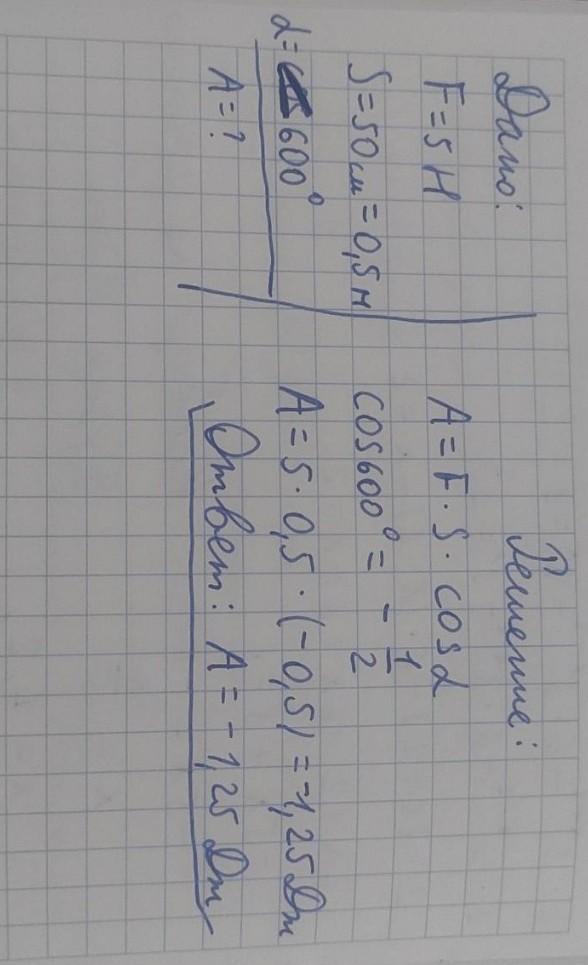 Дано:
F = 5 Н
S = 50 см = 0,5 м
α = 600°
A = ?
Решение:
A = F · S · cos α
cos 600° = - 1/2
A = 5 · 0,5 · (-0,5) = -1,25 Дж
Ответ: A = -1,25 Дж